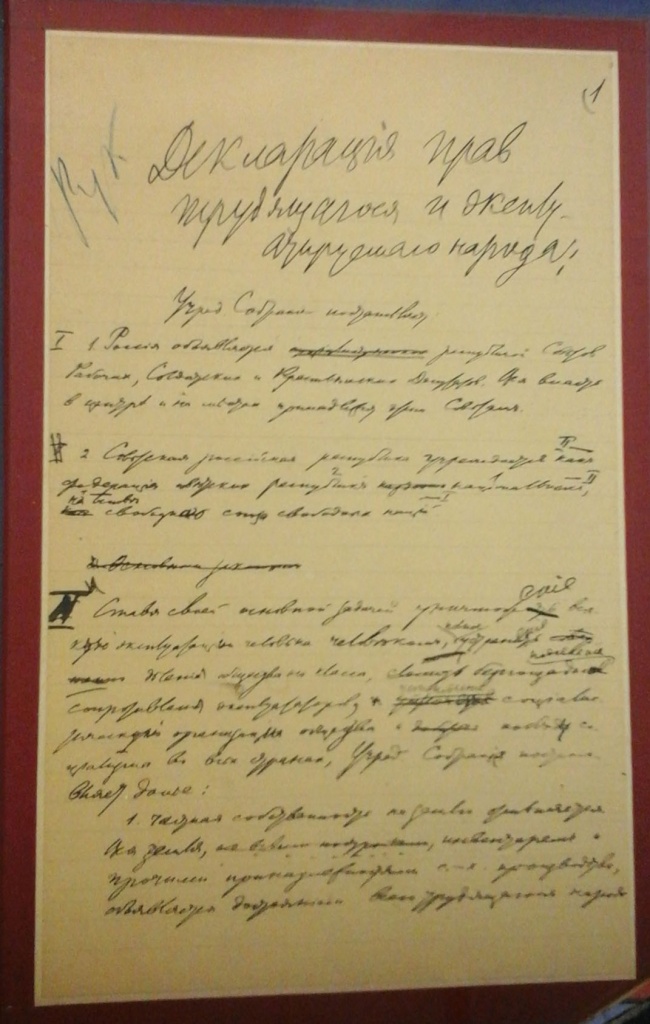 1
Декларація прав
трудящагося и эксплу-
атируемаго народа
Учред Собрание постановляет:
I 1 Россія объявляется республикой Советов
Рабочих, Солдатских и Крестьянских Депутатов. Вся власть
в центре и на местах принадлежит этим Советам.
2 Советская российская республика учреждается
федерация советских республик национальных,
свободного союза свободных наций
2. Основной
Ставя своей основной задачей уничтожение вся-
кой эксплуатации человека человеком,
деления общества на классы, беспощадное
сопротивления эксплуататоров, социали-
стической организации общества и победы со-
циализма во всех странах, Учред Собрание постано-
вляет далее:
1. Частная собственность на землю отменяется
Вся земля, со всеми постройками, инвентарем и
прочими принадлежностями с.-х. производства,
объявляется достоянием всего трудящегося народа